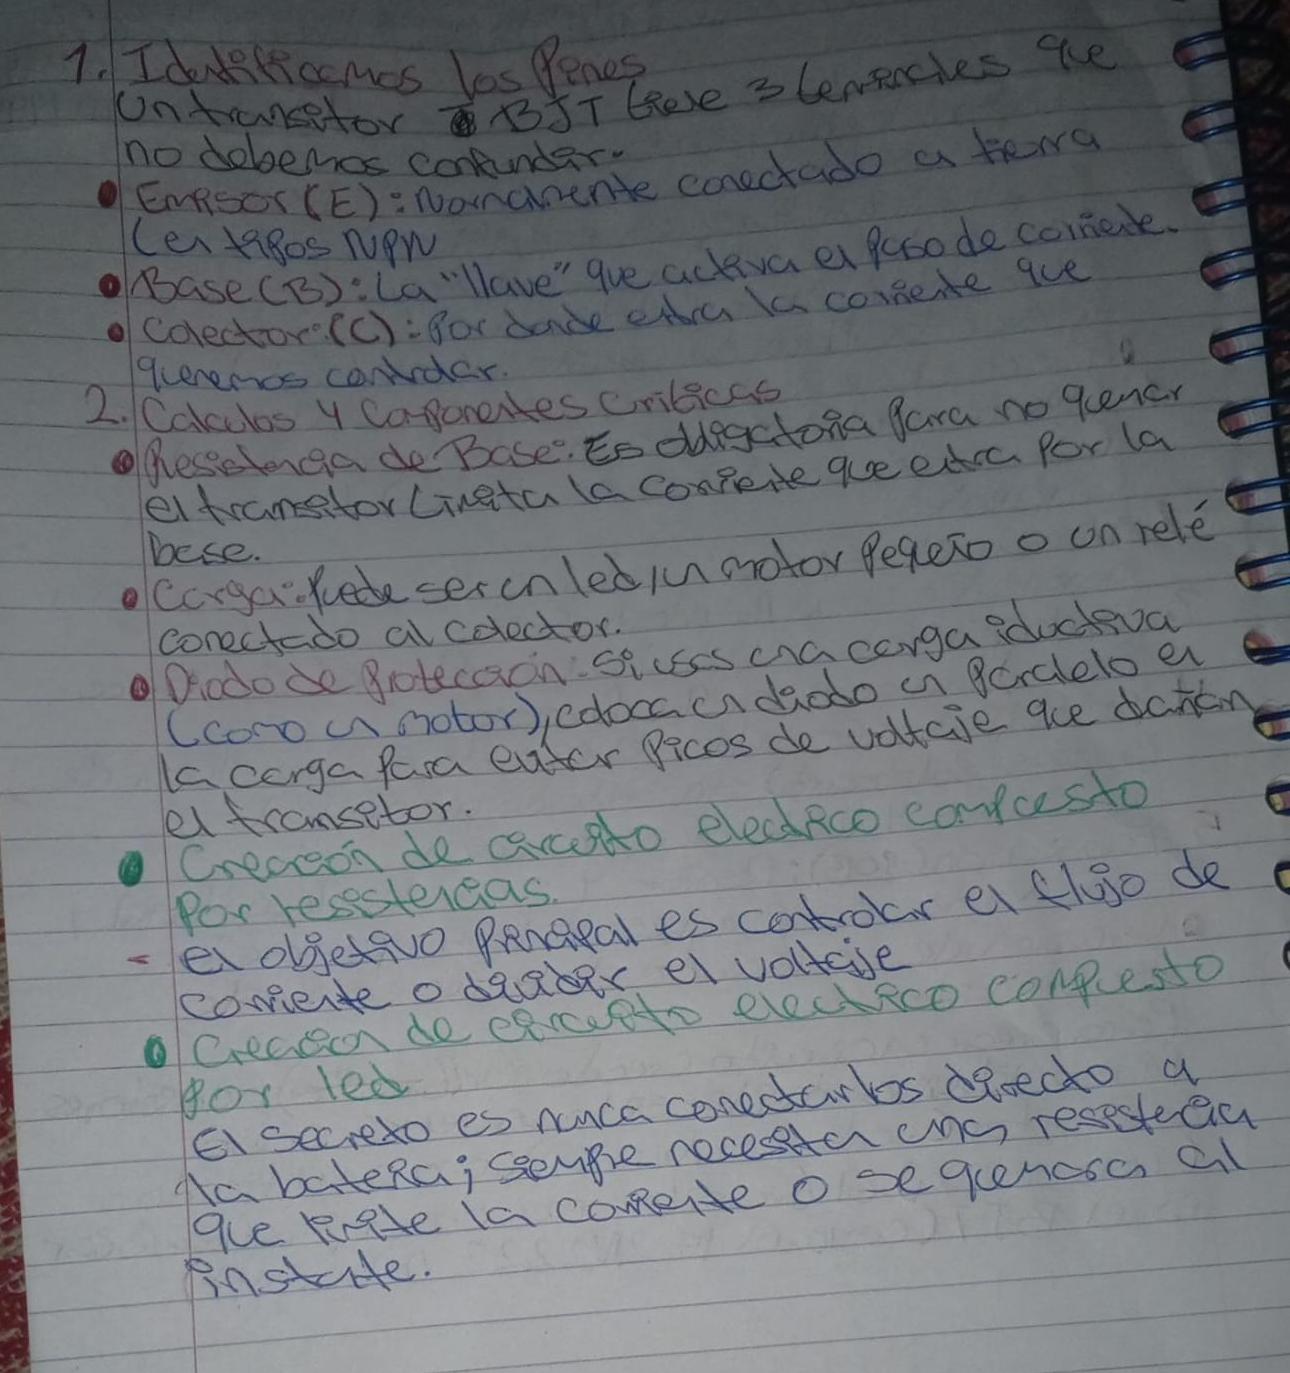 1. Identificamos los Pines
Un transitor BJT tiene 3 terminales que
no debemos confundir.
Emisor (E): Normalmente conectado a tierra
(en tipos NPN
Base (B): La "llave" que activa el paso de corriente.
Colector (C): Por donde entra la corriente que
queremos controlar.
2. Calculos y Componentes criticas
Resistencia de Base: Es obligatoria para no quemar
el transitor Limita la corriente que entra por la
base.
Carga: Puede ser un led, un motor pequeño o un relé
conectado al colector.
Diodo de Protección: Si usas una carga iductiva
(como un motor), coloca un diodo en paralelo en
la carga para evitar picos de voltaje que dañan
el transitor.
Creación de circuito electrico compuesto
Por resistencias.
- el objetivo Principal es controlar el flujo de
corriente o dividir el voltaje
Creacion de circuito electrico compuesto
por led
El secreto es nunca conectarlos directo a
la bateria; siempre necesita una resistencia
que limite la corriente o se quemara al
instante.